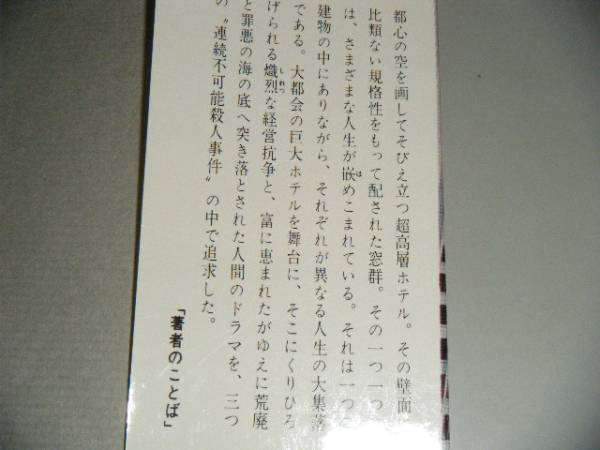 都心の空を画してそびえ立つ超高層ホテル。その壁面
比類ない規格性をもって配された窓群。その一つ一つ
は、さまざまな人生が嵌めこまれている。それは一つ
建物の中にありながら、それぞれが異なる人生の大集落
である。大都会の巨大ホテルを舞台に、そこにくりひろ
げられる熾烈な経営抗争と、富に恵まれたがゆえに荒廃
と罪悪の海の底へ突き落とされた人間のドラマを、三つ
の〝連続不可能殺人事件〟の中で追求した。
「著者のことば」